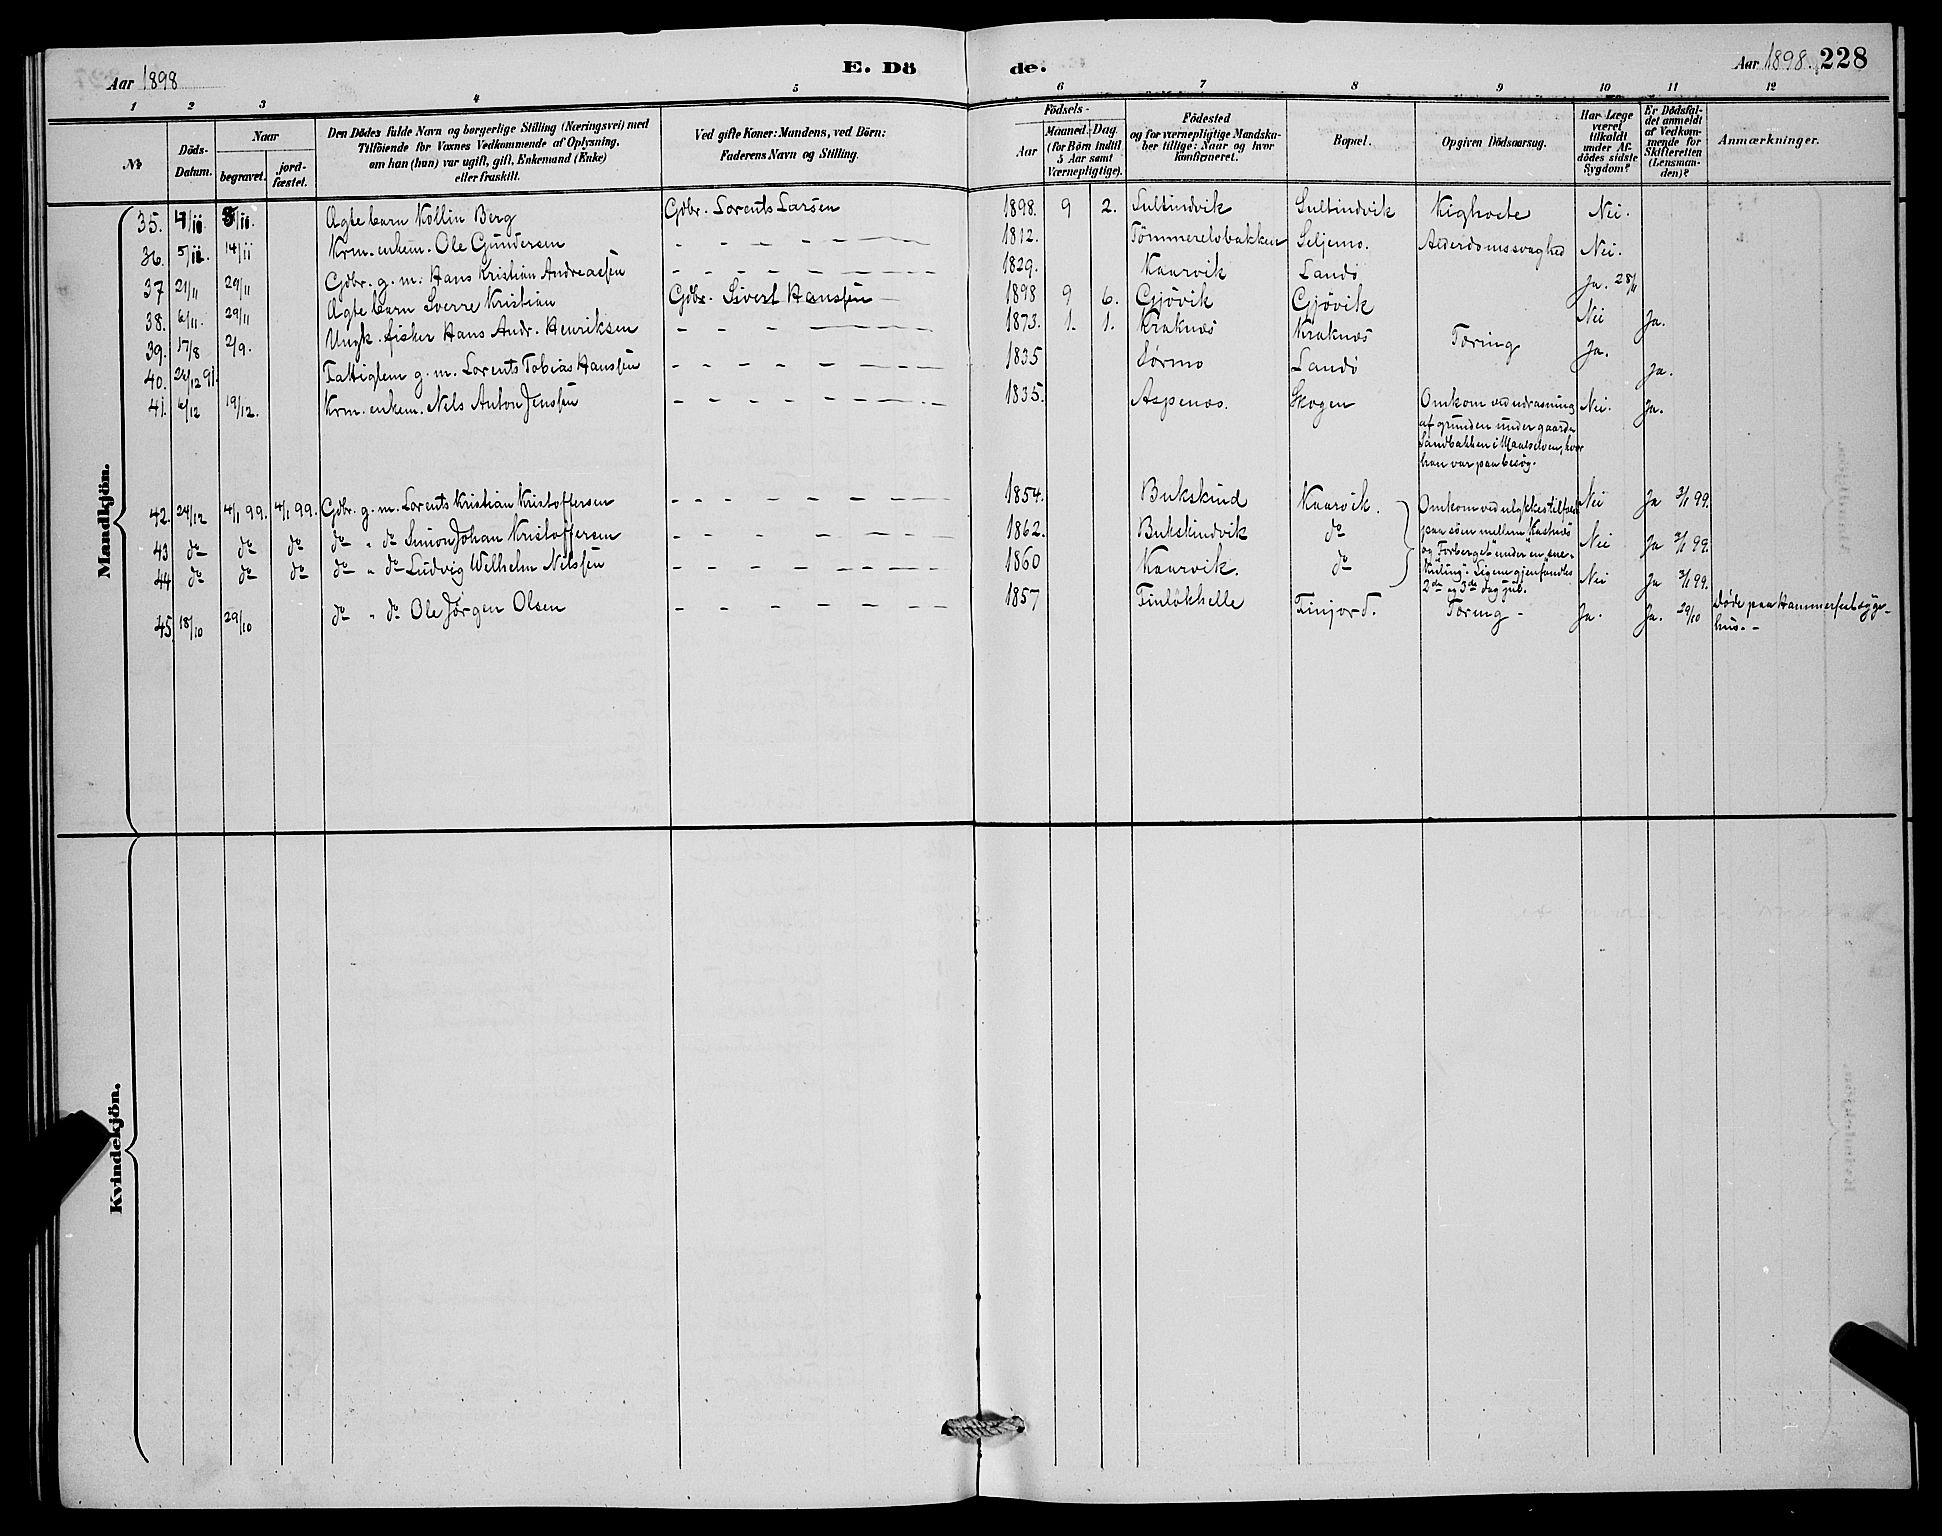 Aar 1898
E. Dö
de.
Aar 1898. 228
1 2 3 4 5 6 7 8 9 10 11 12
No
Döds-Datum.
Naar
begravet.
jord-fæstet.
Den Dödes fulde Navn og borgerlige Stilling (Næringsvei) med
Tilföiende for Voxnes Vedkommende af Oplysning,
om han (hun) var ugift, gift, Enkemand (Enke)
eller fraskilt.
Ved gifte Koner: Mandens, ved Börn:
Faderens Navn og Stilling.
Födsels-
Aar
Maaned. Dag.
(for Börn indtil
5 Aar samt
Værnepligtige).
Födested
og for værnepligtige Mandska-
ber tillige: Naar og hvor
konfirmeret.
Bopæl.
Opgiven Dödsaarsag.
Har Læge
været
tilkaldt
under Af-
dödes sidste
Sygdom?
Er Dödsfal-
det anmeldt
af Vedkom-
mende for
Skifteretten
(Lensman-
den)?
Anmærkninger.
Mandkjön.
35. 4/11. 5/11. Ægte barn Kollin Berg Gdbr. Lorents Larsen 1898. 9 2. Sultindvik Sultindvik Kighoste Nei.
36. 5/11. 14/11 Krm. enkem. Ole Gundersen 1812. Tømmerelvbakken Seljemo. Alderdomssvaghed Nei.
37 21/11 29/11 Gdbr. g. m. Hans Kristian Andreassen 1829. Kaarvik Landö Ja. 28/11
38. 6/11. 29/11 Ægte barn Sverre Kristian Gdbr. Sivert Hanssen 1898 9 6. Gjövik Gjövik Nei Ja.
39. 17/8 2/9. Ungk. fisker Hans Andr. Henriksen 1873. 1. 1. Kraknæs Kraknæs Tæring Ja.
40. 26/12 91. Fattiglem g. m. Lorents Tobias Hanssen 1835 Sørmo Landö Ja.
41. 6/12 19/12. Krm. enkem. Nels Anton Jenssen 1835. Aspenæs. Skogen Omkom ved udrasning Nei. Ja.
af grunden under gaarden
Sandbakken i Maalselven, hvor
han var paa besög.
42. 24/12 4/1 99. 4/1 99. Gdbr. g. m. Lorents Kristian Kristoffersen 1854. Bukskind Kaarvik. Omkom ved ulykkestilfælde Nei Ja 3/1 99.
43 do do do do " do Simon Johan Kristoffersen 1862. Bukskindvik do paa söen mellem "Kastnæs Nei Ja 3/1 99.
og "Forberget" under en sne-
44 do do do do " do Ludvig Wilhelm Nilssen 1860 Kaarvik. do kuling. Ligene gjenfandtes Nei Ja 3/1 99.
2de og 3de dag jul.
45. 18/10 29/10 do " do Ole Jörgen Olsen 1857 Finlökhelle Finjord. Tæring - Ja. Ja. 29/10 Döde paa Hammerfest syge-
hus. -
Kvindekjön.